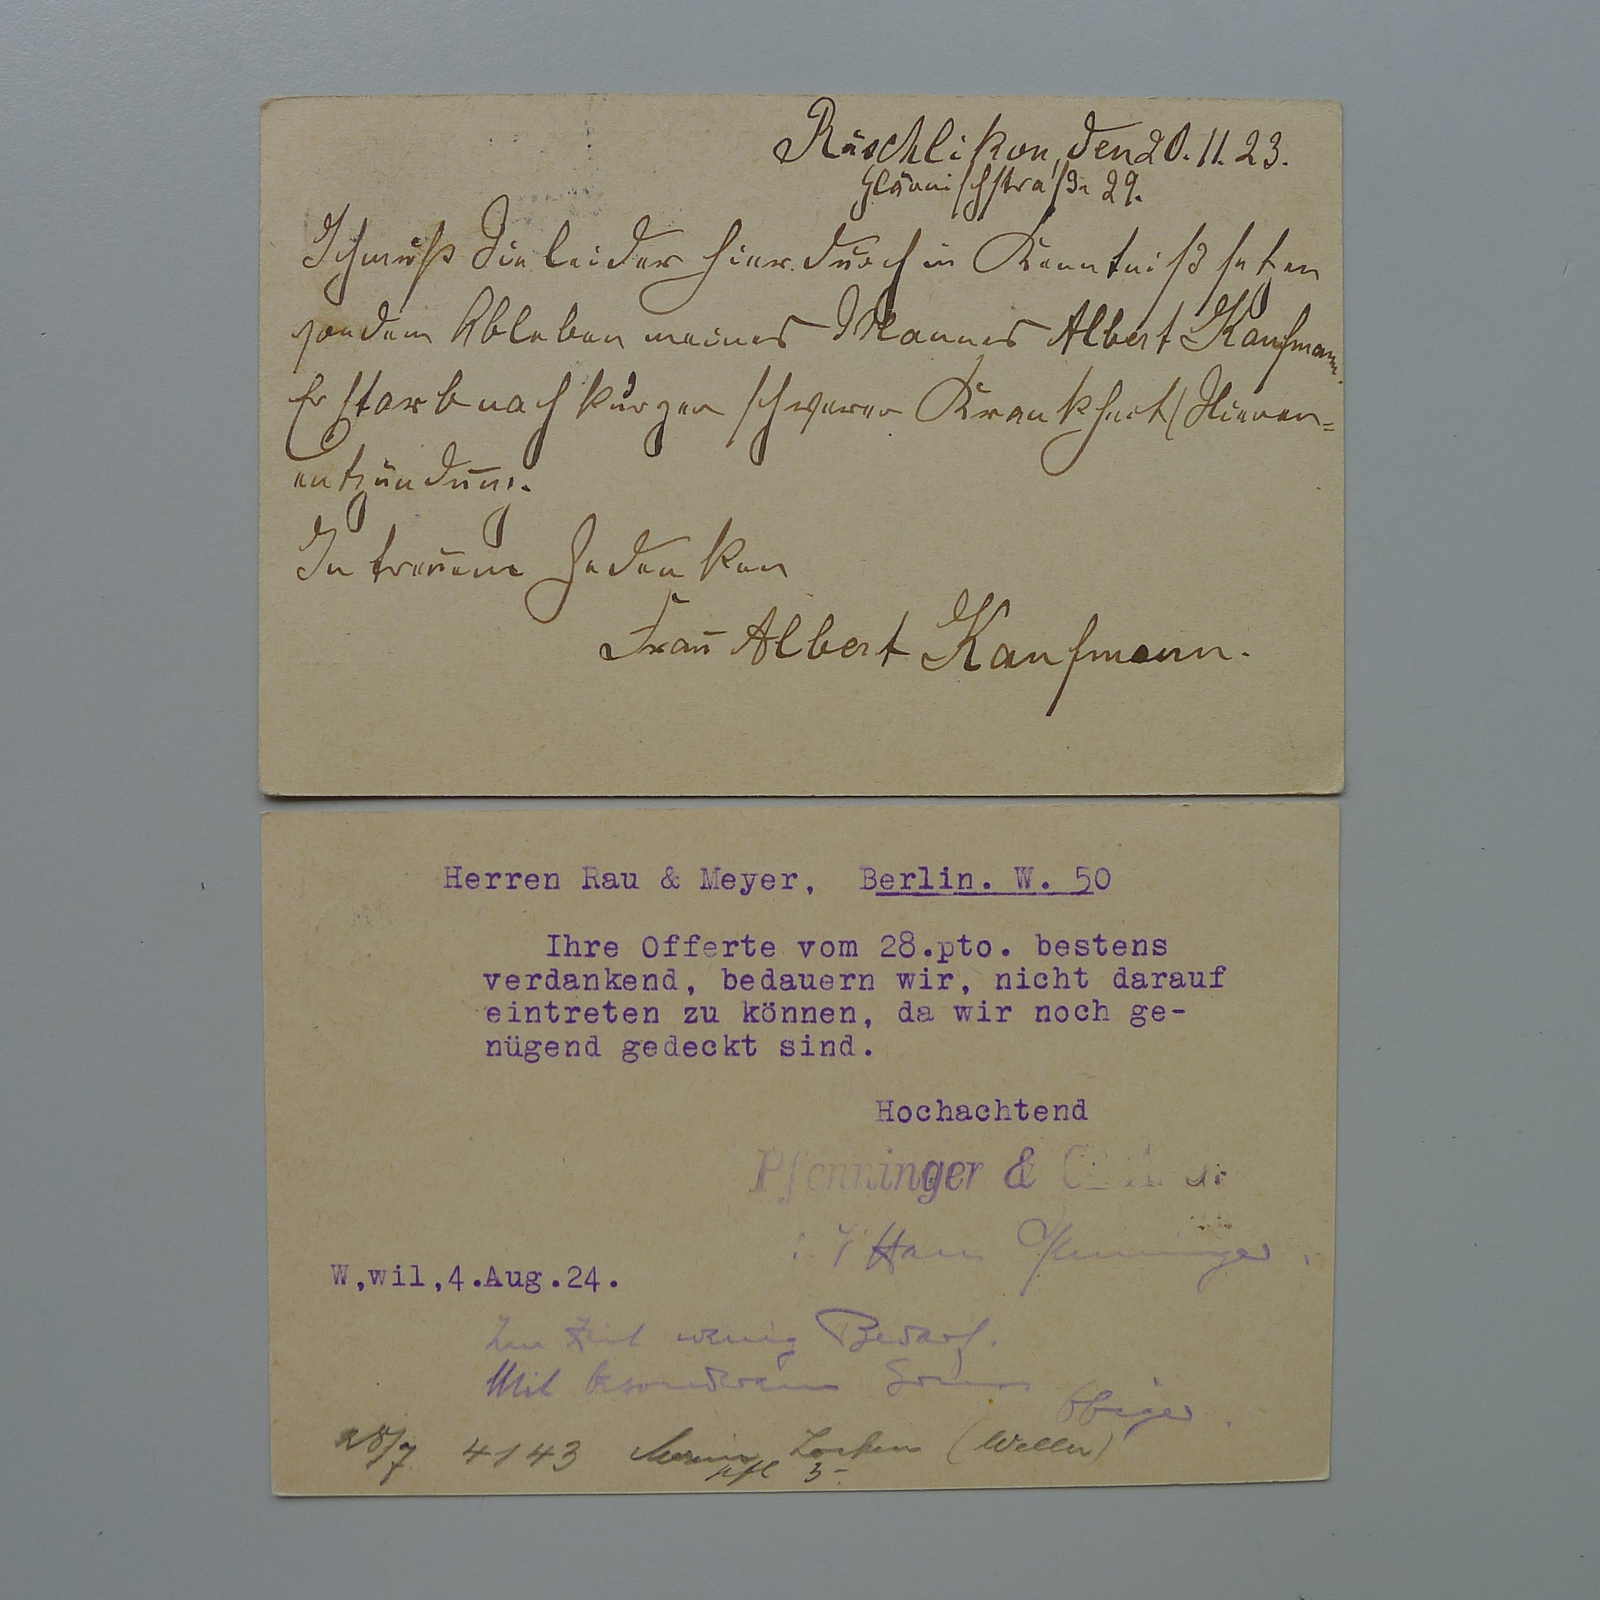 Rüschlikon, den 20.11.23.
Glärnischstraße 29.
Ich muß Sie leider hierdurch in Kenntniß setzen
von dem Ableben meines Mannes Albert Kaufmann.
Er starb nach kurzer schwerer Krankheit (Nieren=
entzündung.
In treuem Gedenken
Frau Albert Kaufmann.
Herren Rau & Meyer, Berlin. W. 50
Ihre Offerte vom 28.pto. bestens
verdankend, bedauern wir, nicht darauf
eintreten zu können, da wir noch ge-
nügend gedeckt sind.
Hochachtend
Pfenninger &
Hans Pfenninger.
W,wil,4.Aug.24.
Zur Zeit wenig Bedarf.
Mit besonderem Gruss
Obiger.
28/7 4143 (Weller)
3-